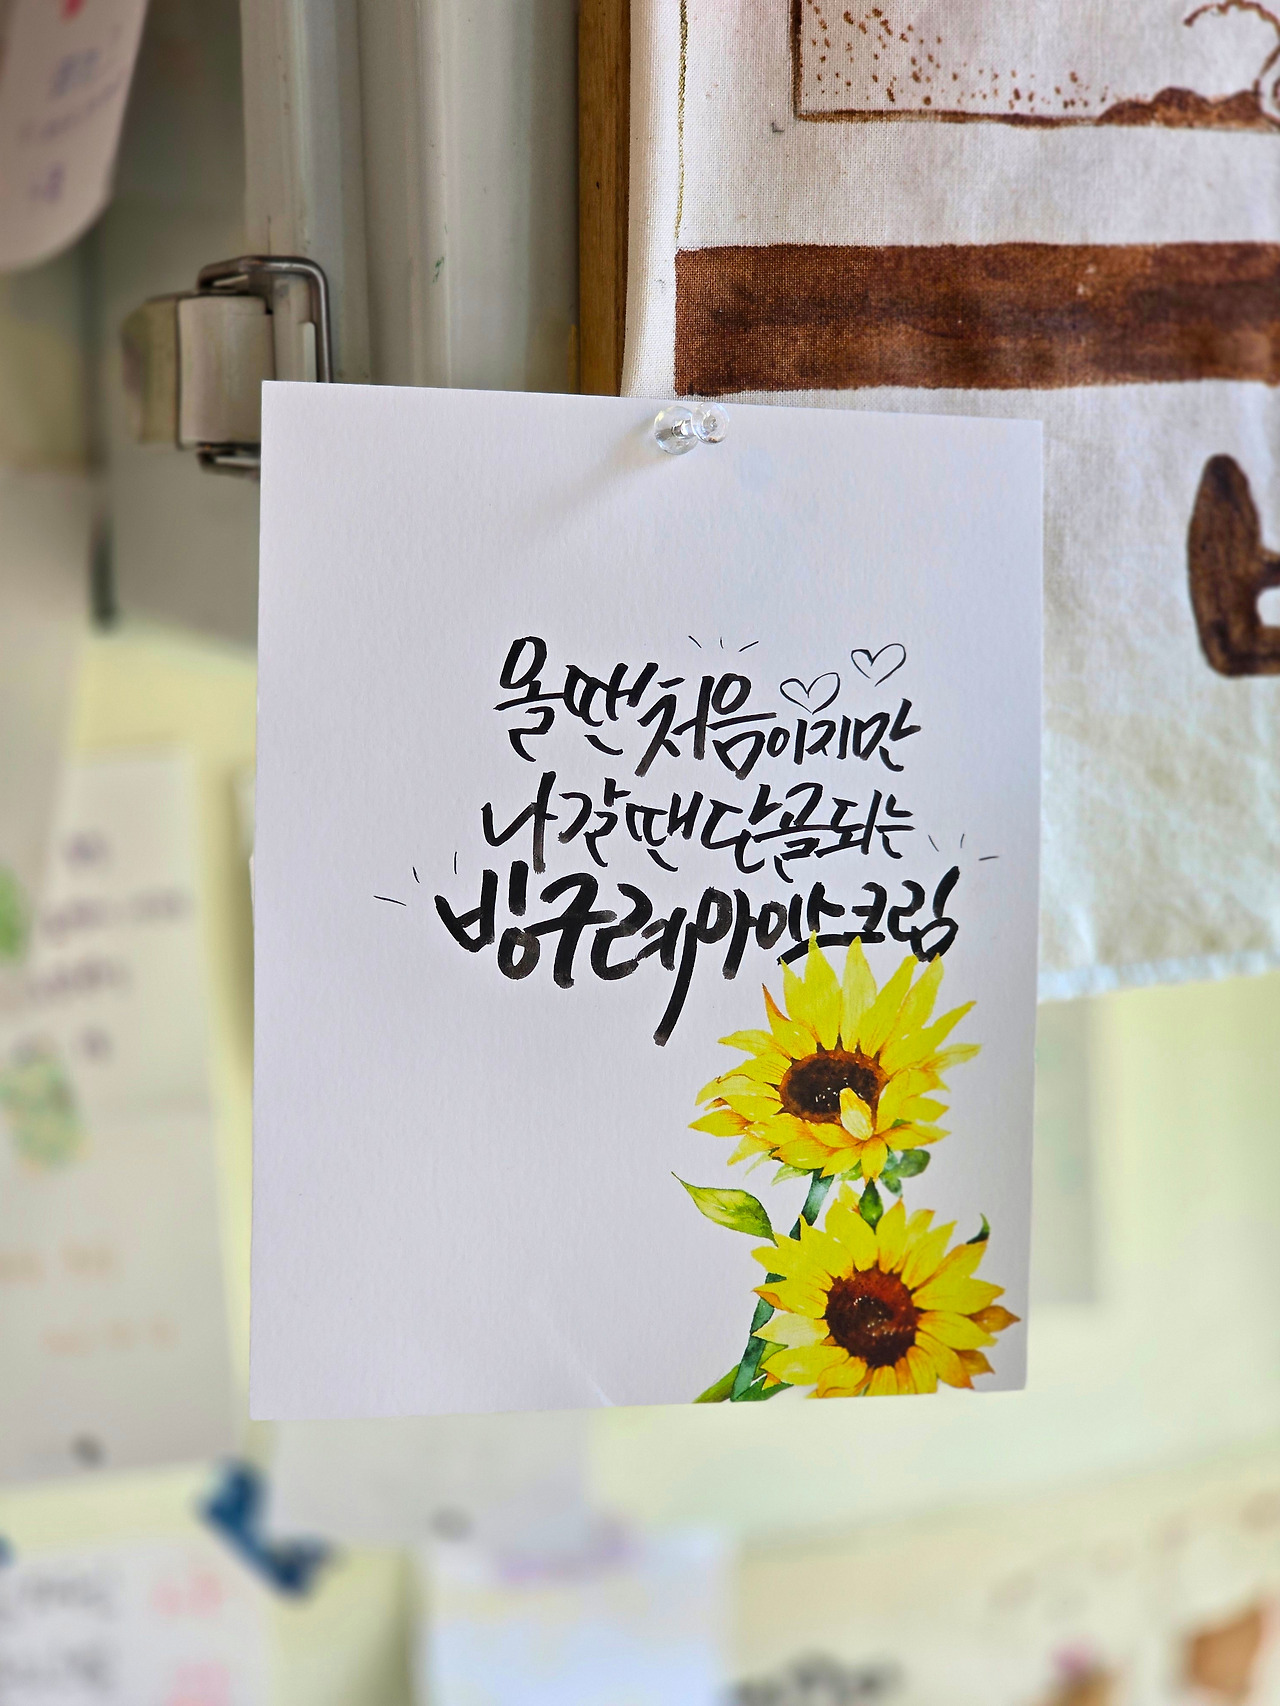 올땐 처음이지만
나갈땐 단골되는
빙구레아이스크림